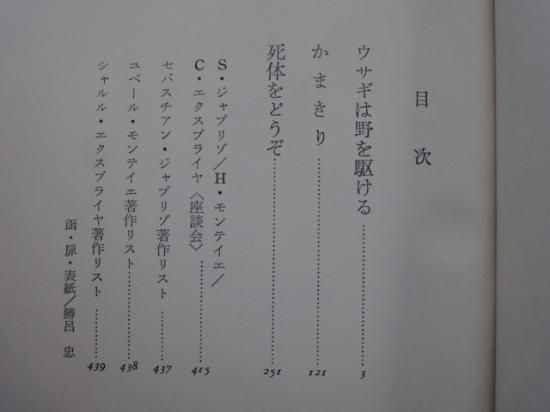 目次
ウサギは野を駆ける………3
かまきり………121
死体をどうぞ………251
S・ジャプリゾ／H・モンテイエ／
C・エクスブライヤ〈座談会〉………415
セバスチアン・ジャプリゾ著作リスト………437
ユベール・モンテイエ著作リスト………438
シャルル・エクスブライヤ著作リスト………439
函・扉・表紙／勝呂 忠